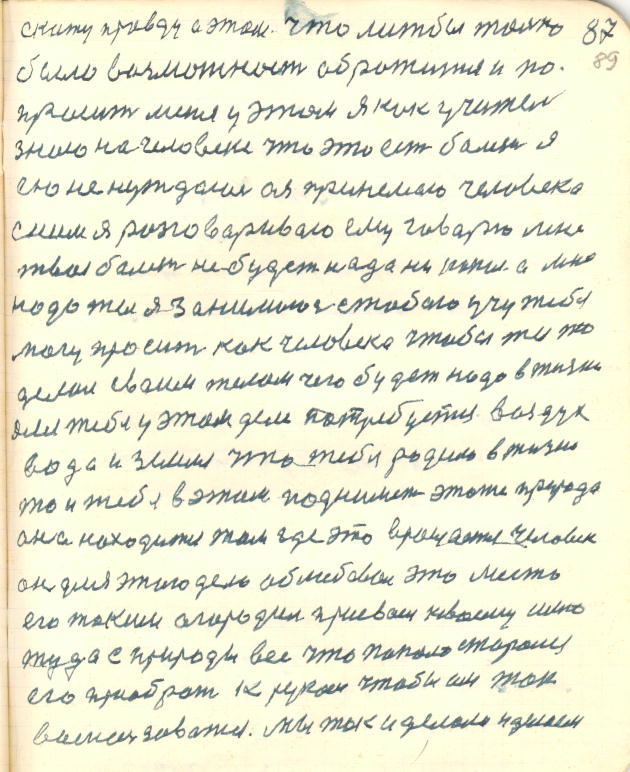 скажу правду о этом. что лишбы только 87
было возможност оброжитися и по- 89
просит меня у этом я как учител
знаю на человеке что это ест болет я
ею не нуждаюс а я принемаю человека
сним я розговариваю ему говарю мне
твоя болет не будет нада ни копи а мне
надо ты я занимаюс стобою учу тебя
могу просит как человека чтобы ты то
делал сваим телом чего будет надо в жизни
для тебя у этом деле потребуется воздух
вода и земля что тебя родило в жизню
то и тебя в этом поднимет этаже природа
она находится там где это вращается человек
он для этого дела облюбовал это место
его таким огородил присвоил ксвоему имю
туда с природы все что попало старался
его приобрат к рукам чтобы им так
воспользоватся. мы так и делали и делаем